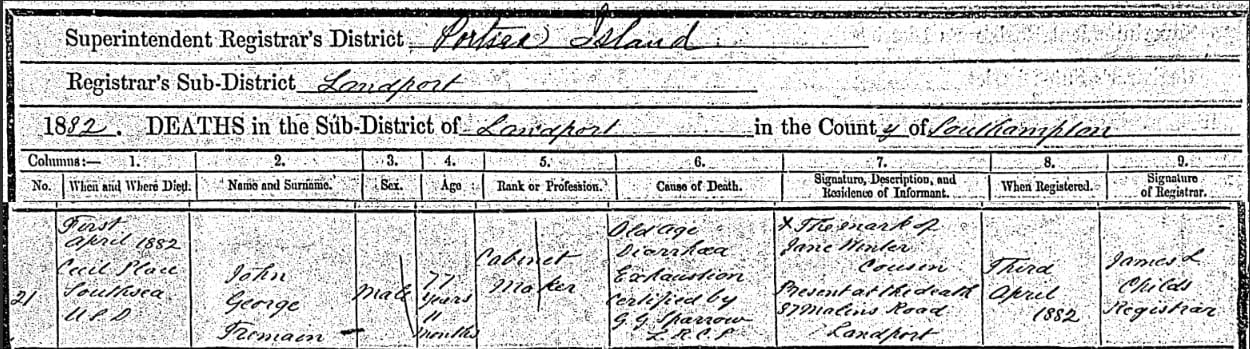 Superintendent Registrar's District Portsea Island
Registrar's Sub-District Landport
1882. DEATHS in the Sub-District of Landport in the County of Southampton
Columns:— 1. 2. 3. 4. 5. 6. 7. 8. 9.
No. When and Where Died. Name and Surname. Sex. Age Rank or Profession. Cause of Death. Signature, Description, and Residence of Informant. When Registered. Signature of Registrar.
21
First
April 1882
Cecil Place
Southsea
U S D
John
George
Tremain
Male
77
years
11
months
Cabinet
Maker
Old age
Diarrhœa
Exhaustion
Certified by
G G Sparrow
L.R.C.P
X The mark of
Jane Winter
Cousin
Present at the death
87 Malins Road
Landport
Third
April
1882
James L
Childs
Registrar